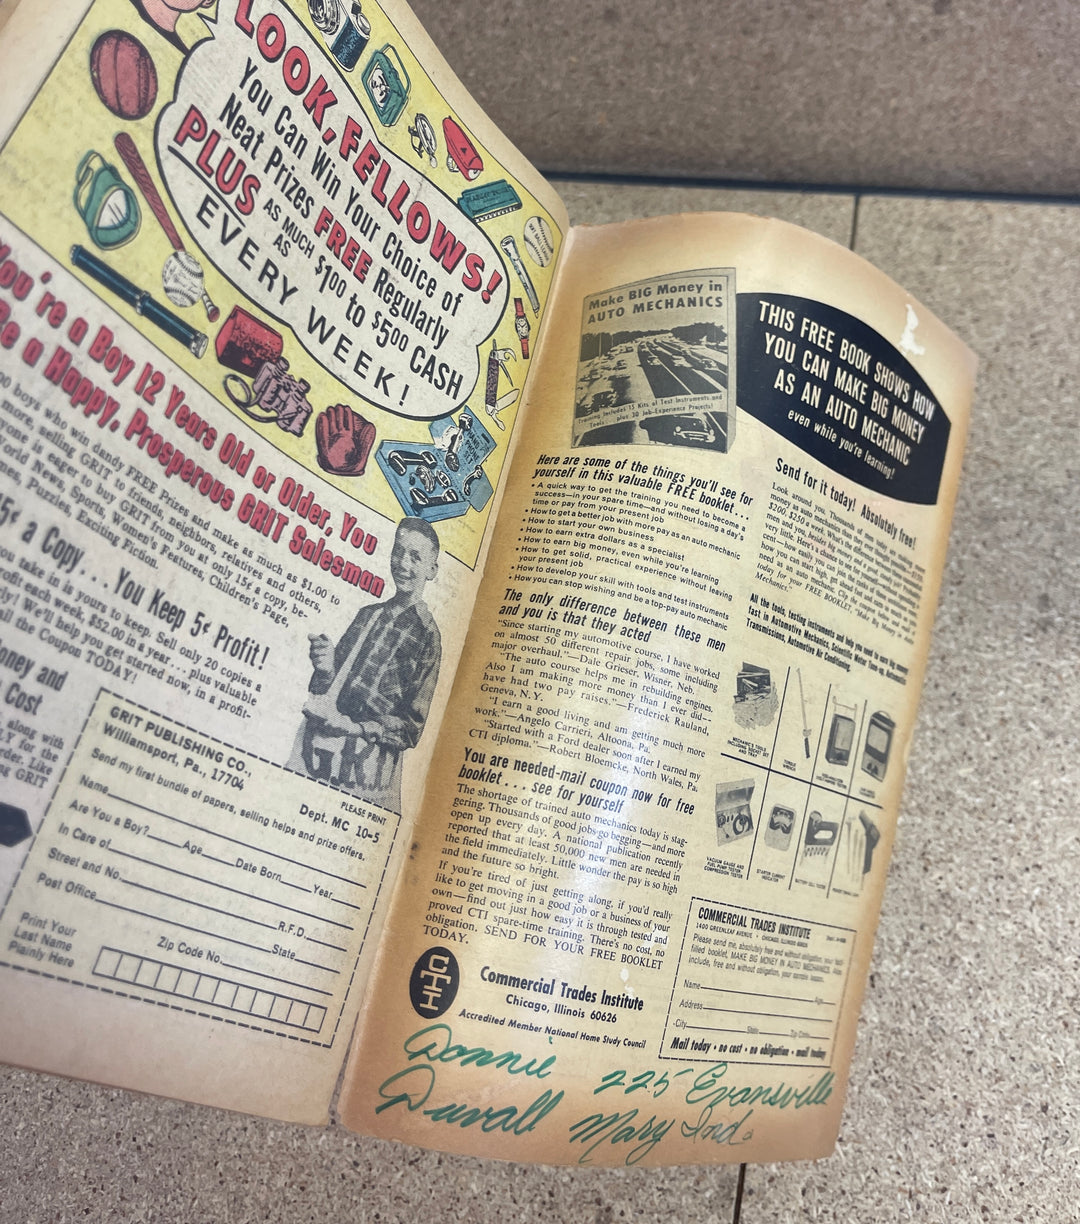 LOOK, FELLOWS!
You Can Win Your Choice of
Neat Prizes FREE Regularly
PLUS AS MUCH AS $1.00 to $5.00 CASH
EVERY WEEK!
You're a Boy 12 Years Old or Older, You
Be a Happy, Prosperous GRIT Salesman
boys who win dandy FREE Prizes and make as much as $1.00 to
more, selling GRIT to friends, neighbors, relatives and others,
one is eager to buy GRIT from you at only 15¢ a copy, be-
World News, Sports, Women's Features, Children's Page,
Puzzles, Exciting Fiction.
15¢ a Copy . . . You Keep 5¢ Profit!
you take in is yours to keep. Sell only 20 copies a
profit each week, $52.00 in a year . . . plus valuable
We'll help you get started now, in a profit-
the Coupon TODAY!
Money and
Cost
along with
for the
order. Like
GRIT
GRIT
GRIT PUBLISHING CO.,
Williamsport, Pa., 17704
PLEASE PRINT
Dept. MC 10-5
Send my first bundle of papers, selling helps and prize offers.
Name
Are You a Boy? Age Date Born Year
In Care of
Street and No.
Post Office R.F.D.
State
Zip Code No.
Print Your
Last Name
Plainly Here
Make BIG Money in
AUTO MECHANICS
Training Includes 15 Kits of Test Instruments and
Tools plus 30 Job-Experience Projects!
THIS FREE BOOK SHOWS HOW
YOU CAN MAKE BIG MONEY
AS AN AUTO MECHANIC
even while you're learning!
Here are some of the things you'll see for
yourself in this valuable FREE booklet . . .
• A quick way to get the training you need to become a
success—in your spare time—and without losing a day's
time or pay from your present job
• How to get a better job with more pay as an auto mechanic
• How to start your own business
• How to earn extra dollars as a specialist
• How to earn big money, even while you're learning
• How to get solid, practical experience without leaving
your present job
• How to develop your skill with tools and test instruments
• How you can stop wishing and be a top-pay auto mechanic
The only difference between these men
and you is that they acted
"Since starting my automotive course, I have worked
on almost 50 different repair jobs, some including
major overhaul."—Dale Grieser, Wisner, Neb.
"The auto course helps me in rebuilding engines.
Also I am making more money than I ever did—
have had two pay raises."—Frederick Rauland,
Geneva, N.Y.
"I earn a good living and am getting much more
work."—Angelo Carrieri, Altoona, Pa.
"Started with a Ford dealer soon after I earned my
CTI diploma."—Robert Bloemcke, North Wales, Pa.
You are needed-mail coupon now for free
booklet . . . see for yourself
The shortage of trained auto mechanics today is stag-
gering. Thousands of good jobs go begging—and more
open up every day. A national publication recently
reported that at least 50,000 new men are needed in
the field immediately. Little wonder the pay is so high
and the future so bright.
If you're tired of just getting along, if you'd really
like to get moving in a good job or a business of your
own—find out just how easy it is through tested and
proved CTI spare-time training. There's no cost, no
obligation. SEND FOR YOUR FREE BOOKLET
TODAY.
CTI
Commercial Trades Institute
Chicago, Illinois 60626
Accredited Member National Home Study Council
Send for it today! Absolutely free!
Look around you. Thousands of men today are making
money as auto mechanics
$200, $250 a week.
men and you, besides
very little. Here's a chance to see for yourself
cent—how easily you can join the
how you can start high, get
need as an auto mechanic. Clip the coupon
today for your FREE BOOKLET, "Make Big Money in Auto
Mechanics."
All the tools, testing instruments and help you need to earn big money
fast in Automotive Mechanics, Scientific Motor Tune-up, Automatic
Transmissions, Automotive Air Conditioning.
MECHANIC'S TOOLS
INCLUDING SOCKET SET
AND TRAY
TORQUE
WRENCH
VACUUM GAUGE AND
FUEL PUMP TESTER
COMPRESSION TESTER
STARTER CURRENT
INDICATOR
BATTERY CELL TESTER
COMMERCIAL TRADES INSTITUTE
1400 GREENLEAF AVENUE • CHICAGO, ILLINOIS 60626
Please send me, absolutely free and without obligation, your fact-
filled booklet, MAKE BIG MONEY IN AUTO MECHANICS. Also
include, free and without obligation, your sample lesson.
Name Age
Address
City State Zip Code
Mail today • no cost • no obligation • mail today
Donnie 225 Evansville
Duvall Mary Ind.